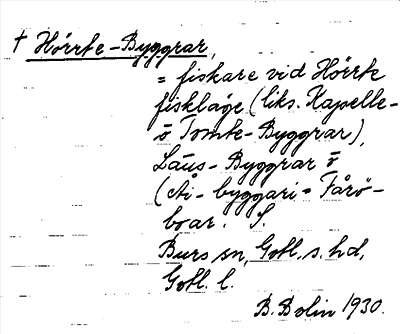 † Hörrte-Byggrar,
= fiskare vid Hörrte
fiskläge (liks. Kapelle-
o Tomte-Byggrar),
Läus-Byggrar o
(Åi-byggari = Fårö-
boar. S.
Burs sn, Gotl. s. hd,
Gotl. l.
B. Bolin 1930.